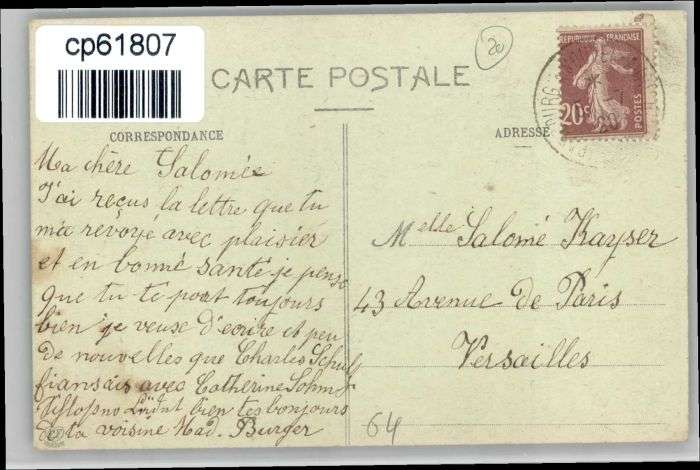 cp61807
20
CARTE POSTALE
CORRESPONDANCE
ADRESSE
REPUBLIQUE FRANÇAISE
20c
POSTES
Ma chère Salomée
J'ai reçus la lettre que tu
m'ée révoyé avec plaisier
et en bonne santé je pense
que tu te port toujours
bien je veuse d'ecrire et peu
de nouvelles que Charles Schul
fiansais avec Catherine Sohm
bien tes bonjours
de ta voisine Mad. Burger
Melle Salomé Kayser
43 Avenue de Paris
Versailles
64